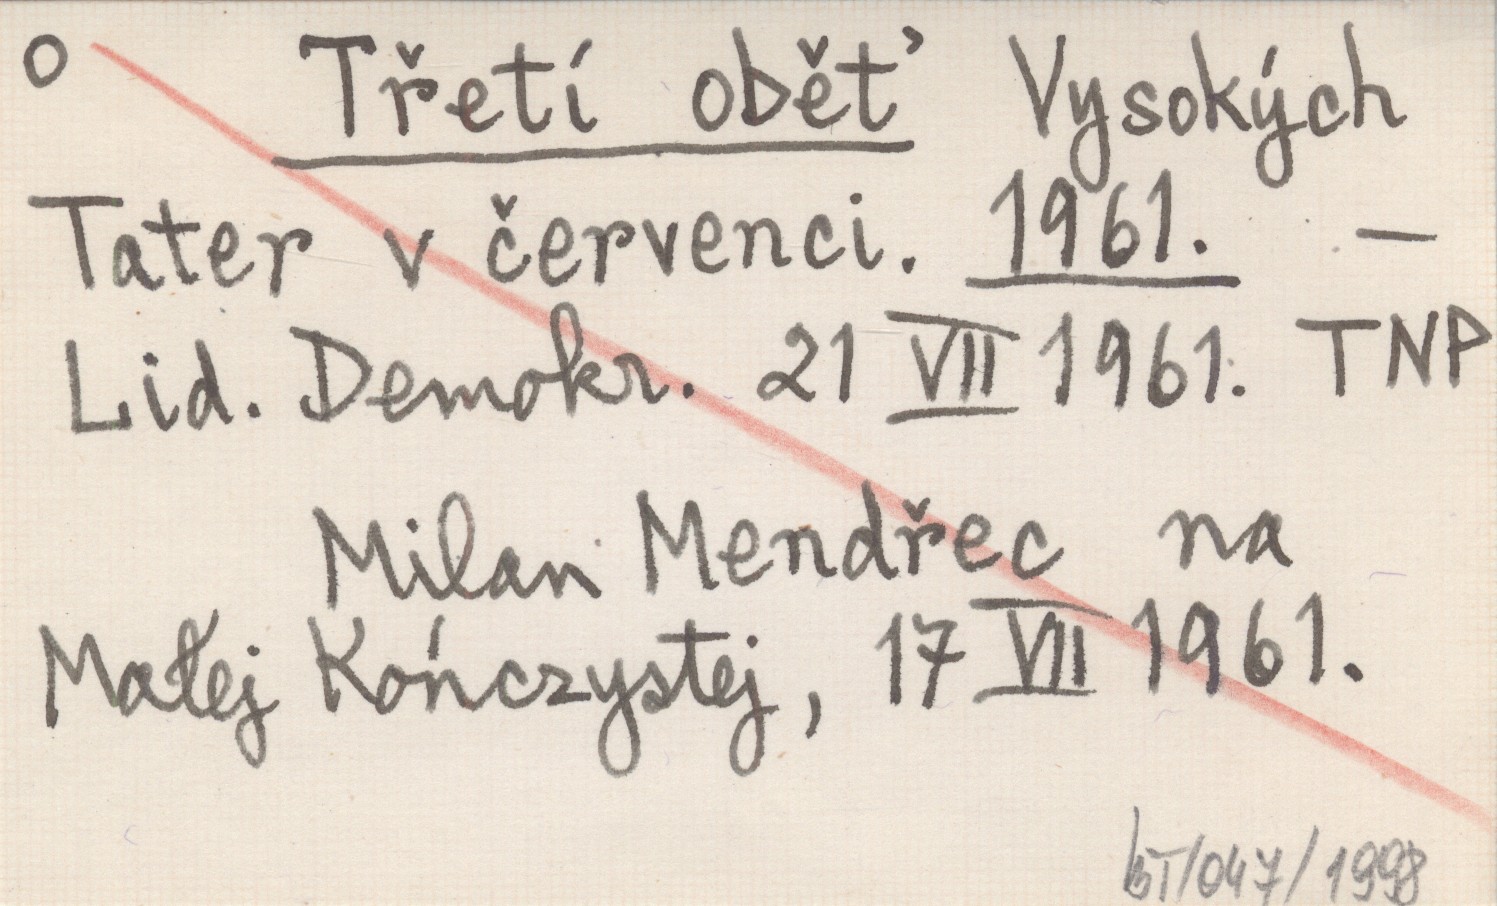 o Třetí oběť Vysokých
Tater v červenci. 1961. —
Lid. Demokr. 21 VII 1961. TNP
Milan Mendřec na
Małej Kończystej, 17 VII 1961.
BT/047/1998